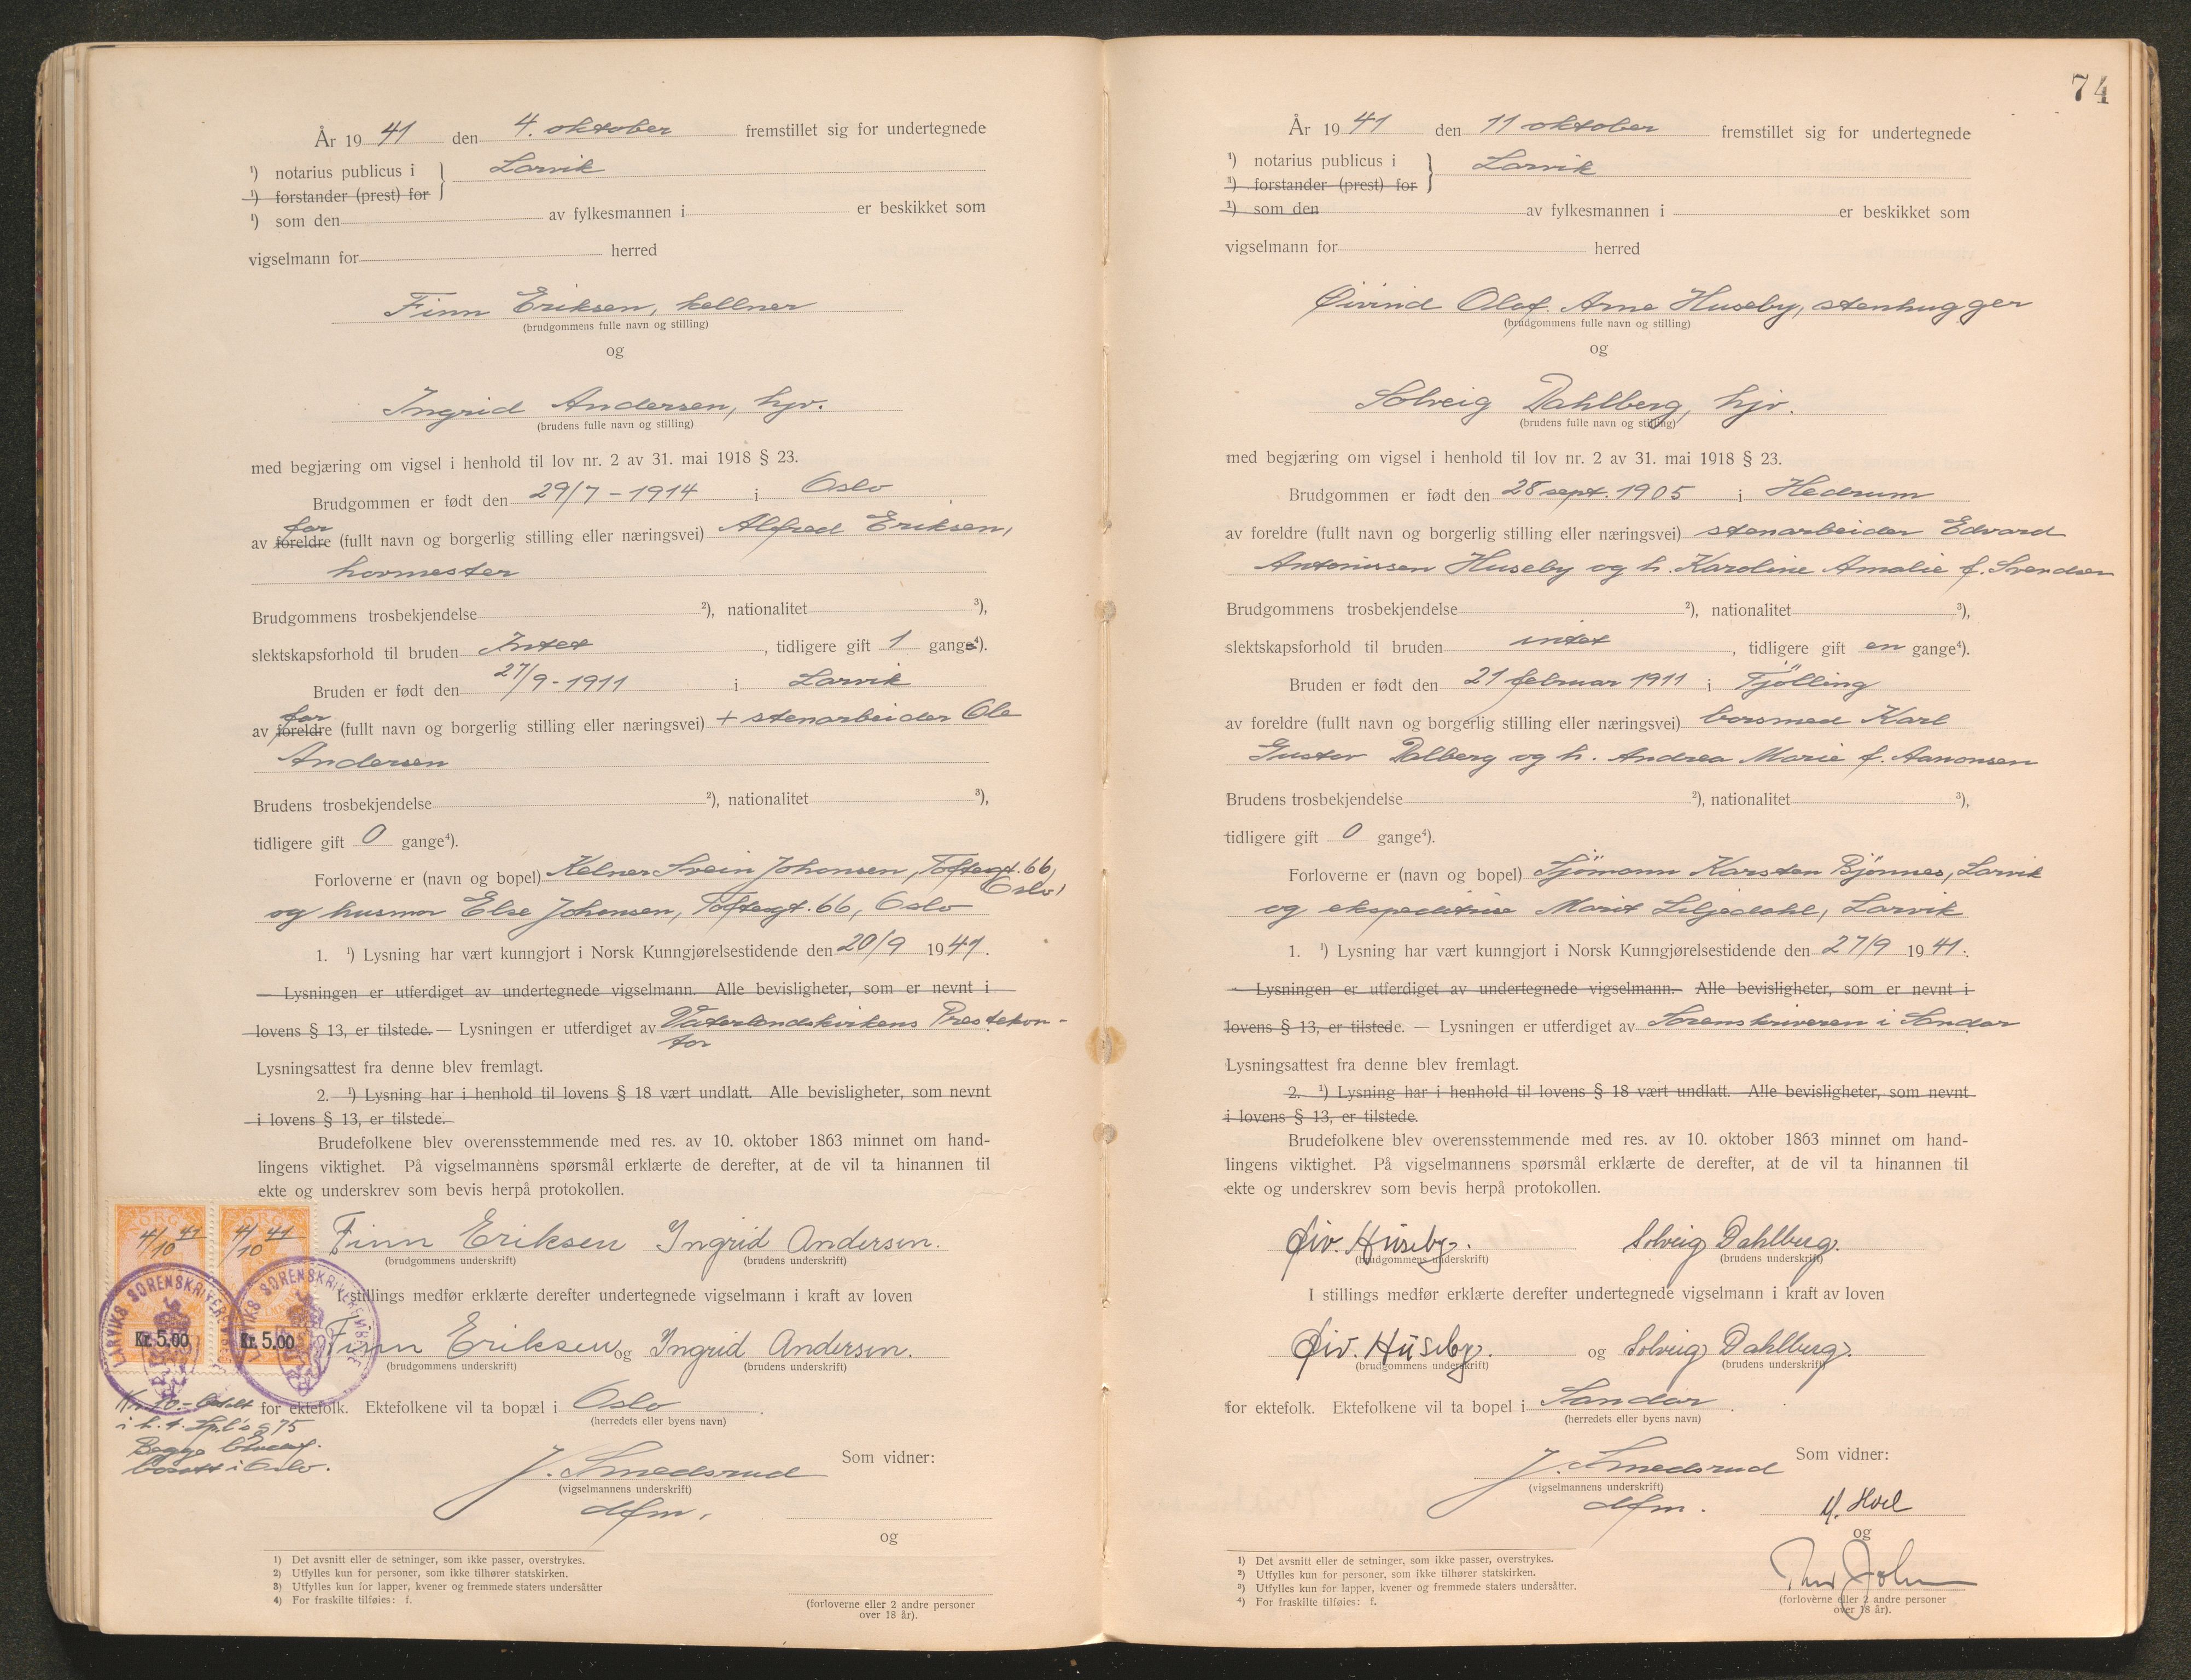 År 1941 den 4. oktober fremstillet sig for undertegnede
¹) notarius publicus i } Larvik
¹) forstander (prest) for
¹) som den av fylkesmannen i er beskikket som
vigselmann for herred
Finn Eriksen, kellner
(brudgommens fulle navn og stilling)
og
Ingrid Andersen, hjv.
(brudens fulle navn og stilling)
med begjæring om vigsel i henhold til lov nr. 2 av 31. mai 1918 § 23.
Brudgommen er født den 29/7 - 1914 i Oslo
far
av foreldre (fullt navn og borgerlig stilling eller næringsvei) Alfred Eriksen,
hovmester
Brudgommens trosbekjendelse ²), nationalitet ³),
slektskapsforhold til bruden Intet, tidligere gift 1 gange⁴).
Bruden er født den 27/9 - 1911 i Larvik
far
av foreldre (fullt navn og borgerlig stilling eller næringsvei) + stenarbeider Ole
Andersen
Brudens trosbekjendelse ²), nationalitet ³),
tidligere gift 0 gange⁴).
Forloverne er (navn og bopel) Kelner Svein Johansen, Toftesgt. 66,
Oslo,
og husmor Else Johansen, Toftesgt. 66, Oslo
1. ¹) Lysning har vært kunngjort i Norsk Kunngjørelsestidende den 20/9 1941.
— Lysningen er utferdiget av undertegnede vigselmann. Alle bevisligheter, som er nevnt i
lovens § 13, er tilstede. — Lysningen er utferdiget av Vaterlandskirkens Prestekon-
tor
Lysningsattest fra denne blev fremlagt.
2. ¹) Lysning har i henhold til lovens § 18 vært undlatt. Alle bevisligheter, som nevnt
i lovens § 13, er tilstede.
Brudefolkene blev overensstemmende med res. av 10. oktober 1863 minnet om hand-
lingens viktighet. På vigselmannens spørsmål erklærte de derefter, at de vil ta hinannen til
ekte og underskrev som bevis herpå protokollen.
NORGE NORGE
4/10 41 4/10 41
Finn Eriksen Ingrid Andersen.
(brudgommens underskrift) (brudens underskrift)
LARVIKS SORENSKRIVEREMBEDE LARVIKS SORENSKRIVEREMBEDE
I stillings medfør erklærte derefter undertegnede vigselmann i kraft av loven
Kr. 5.00 Kr. 5.00
Finn Eriksen og Ingrid Andersen.
(brudgommens underskrift) (brudens underskrift)
Kr. 10.- betalt
for ektefolk. Ektefolkene vil ta bopæl i Oslo.
(herredets eller byens navn)
i h. t. § 75
Begge
bosatt i Oslo.
Som vidner:
J. Smedsrud
(vigselmannens underskrift)
dfm.
og
(forloverne eller 2 andre personer
over 18 år).
1) Det avsnitt eller de setninger, som ikke passer, overstrykes.
2) Utfylles kun for personer, som ikke tilhører statskirken.
3) Utfylles kun for lapper, kvener og fremmede staters undersåtter
4) For fraskilte tilføies: f.
74
År 1941 den 11 oktober fremstillet sig for undertegnede
¹) notarius publicus i } Larvik
¹) forstander (prest) for
¹) som den av fylkesmannen i er beskikket som
vigselmann for herred
Øivind Olaf Arne Huseby, stenhugger
(brudgommens fulle navn og stilling)
og
Solveig Dahlberg, hjv.
(brudens fulle navn og stilling)
med begjæring om vigsel i henhold til lov nr. 2 av 31. mai 1918 § 23.
Brudgommen er født den 28 sept. 1905 i Hedrum
av foreldre (fullt navn og borgerlig stilling eller næringsvei) stenarbeider Edvard
Antonissen Huseby og h. Karoline Amalie f. Svendsen
Brudgommens trosbekjendelse ²), nationalitet ³),
slektskapsforhold til bruden intet, tidligere gift en gange⁴).
Bruden er født den 21 februar 1911 i Tjølling
av foreldre (fullt navn og borgerlig stilling eller næringsvei) borsmed Karl
Gustav Dalberg og h. Andrea Marie f. Aanonsen
Brudens trosbekjendelse ²), nationalitet ³),
tidligere gift 0 gange⁴).
Forloverne er (navn og bopel) Sjömann Karsten Bjønnes, Larvik
og ekspeditrise Marit Liljedahl, Larvik
1. ¹) Lysning har vært kunngjort i Norsk Kunngjørelsestidende den 27/9 1941.
— Lysningen er utferdiget av undertegnede vigselmann. Alle bevisligheter, som er nevnt i
lovens § 13, er tilstede. — Lysningen er utferdiget av Sorenskriveren i Sandar
Lysningsattest fra denne blev fremlagt.
2. ¹) Lysning har i henhold til lovens § 18 vært undlatt. Alle bevisligheter, som nevnt
i lovens § 13, er tilstede.
Brudefolkene blev overensstemmende med res. av 10. oktober 1863 minnet om hand-
lingens viktighet. På vigselmannens spørsmål erklærte de derefter, at de vil ta hinannen til
ekte og underskrev som bevis herpå protokollen.
Øiv. Huseby. Solveig Dahlberg.
(brudgommens underskrift) (brudens underskrift)
I stillings medfør erklærte derefter undertegnede vigselmann i kraft av loven
Øiv. Huseby. og Solveig Dahlberg.
(brudgommens underskrift) (brudens underskrift)
for ektefolk. Ektefolkene vil ta bopel i Sandar.
(herredets eller byens navn)
Som vidner:
J. Smedsrud
(vigselmannens underskrift)
dfm.
og
(forloverne eller 2 andre personer
over 18 år).
1) Det avsnitt eller de setninger, som ikke passer, overstrykes.
2) Utfylles kun for personer, som ikke tilhører statskirken.
3) Utfylles kun for lapper, kvener og fremmede staters undersåtter.
4) For fraskilte tilføies: f.